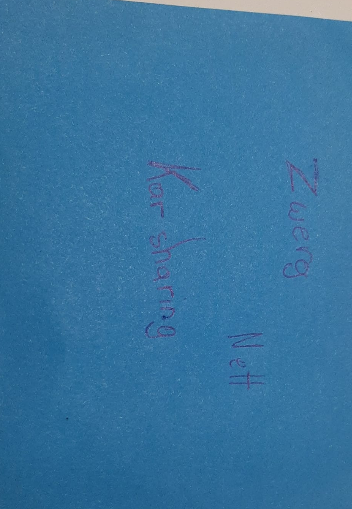 Zwerg
Nett
Kar sharing